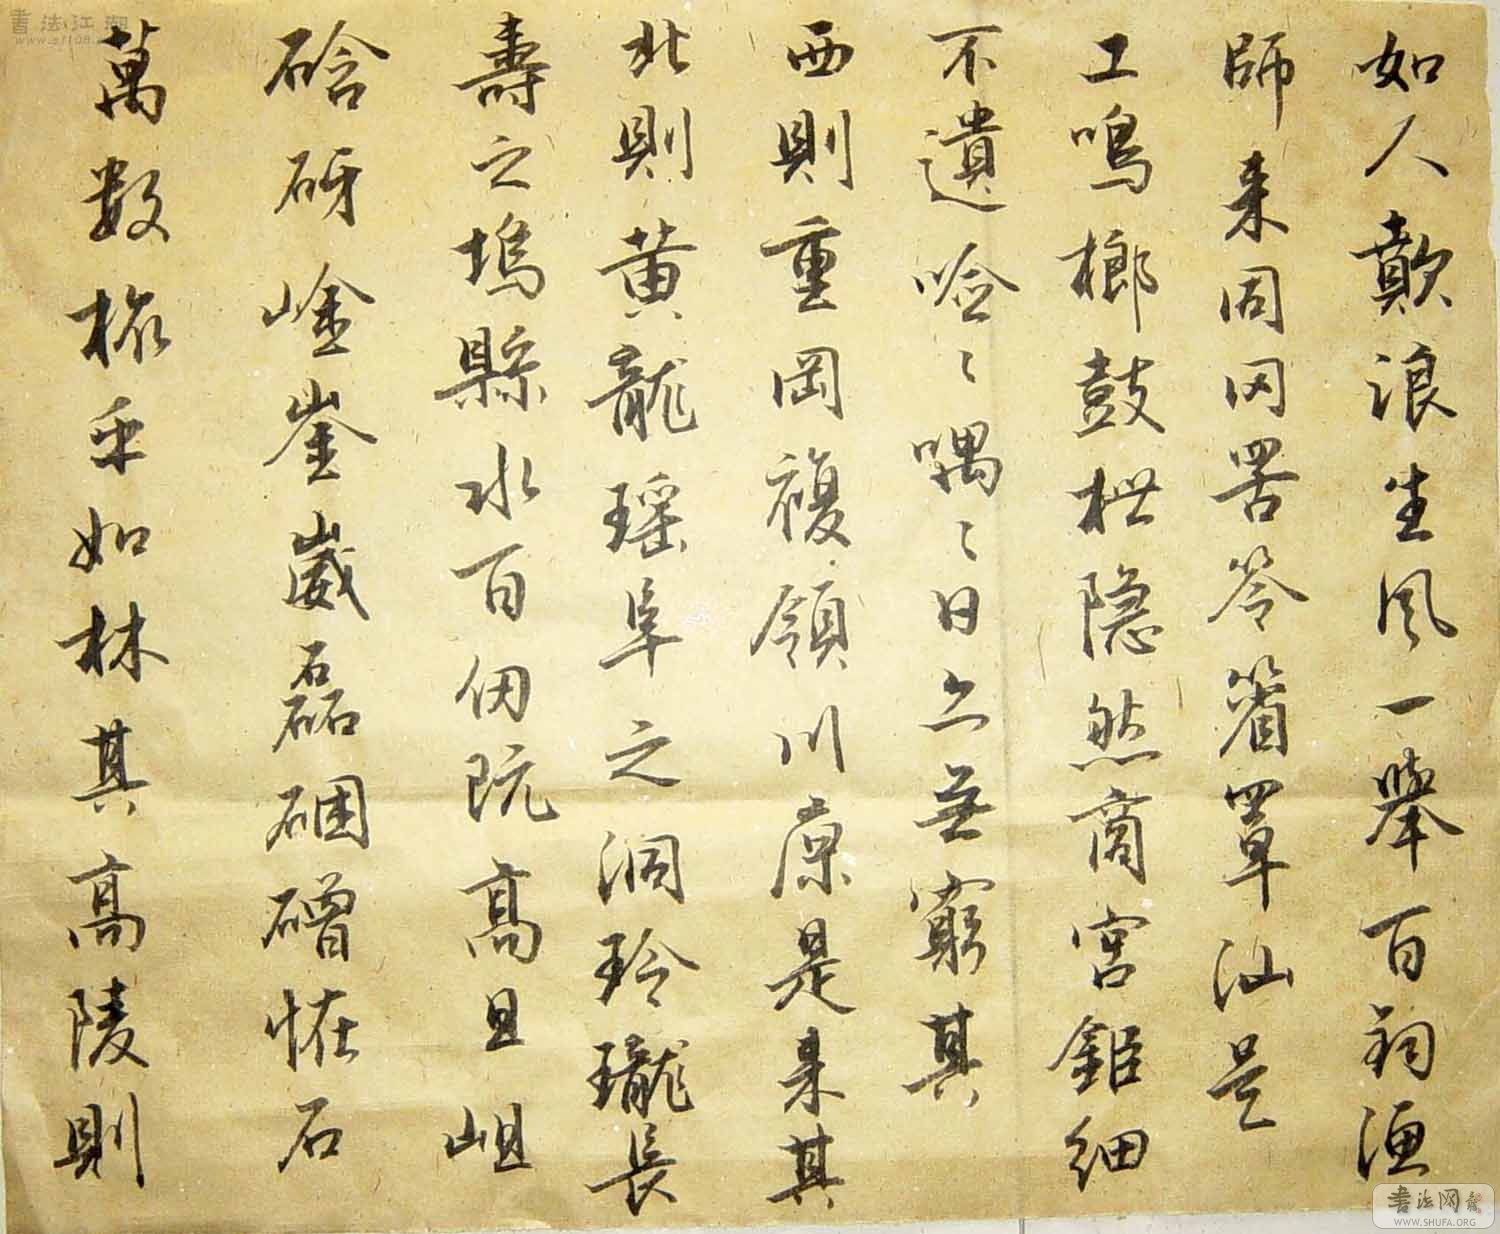 如人歕浪生風一舉百初漁
師来同罔罟笭箵罩汕是
工鳴榔鼓枻隐然商宮鉅細
不遺噞〻喁〻日亦無窮其
西則重岡複領川原是来其
北則黄龍瑶阜之洞玲瓏長
壽之塢縣水百仞阬高且岨
硆砑崯崟崴磊硱磳恠石
萬數㭊乎如林其高陵則
書法江湖
書法网
WWW.SHUFA.ORG